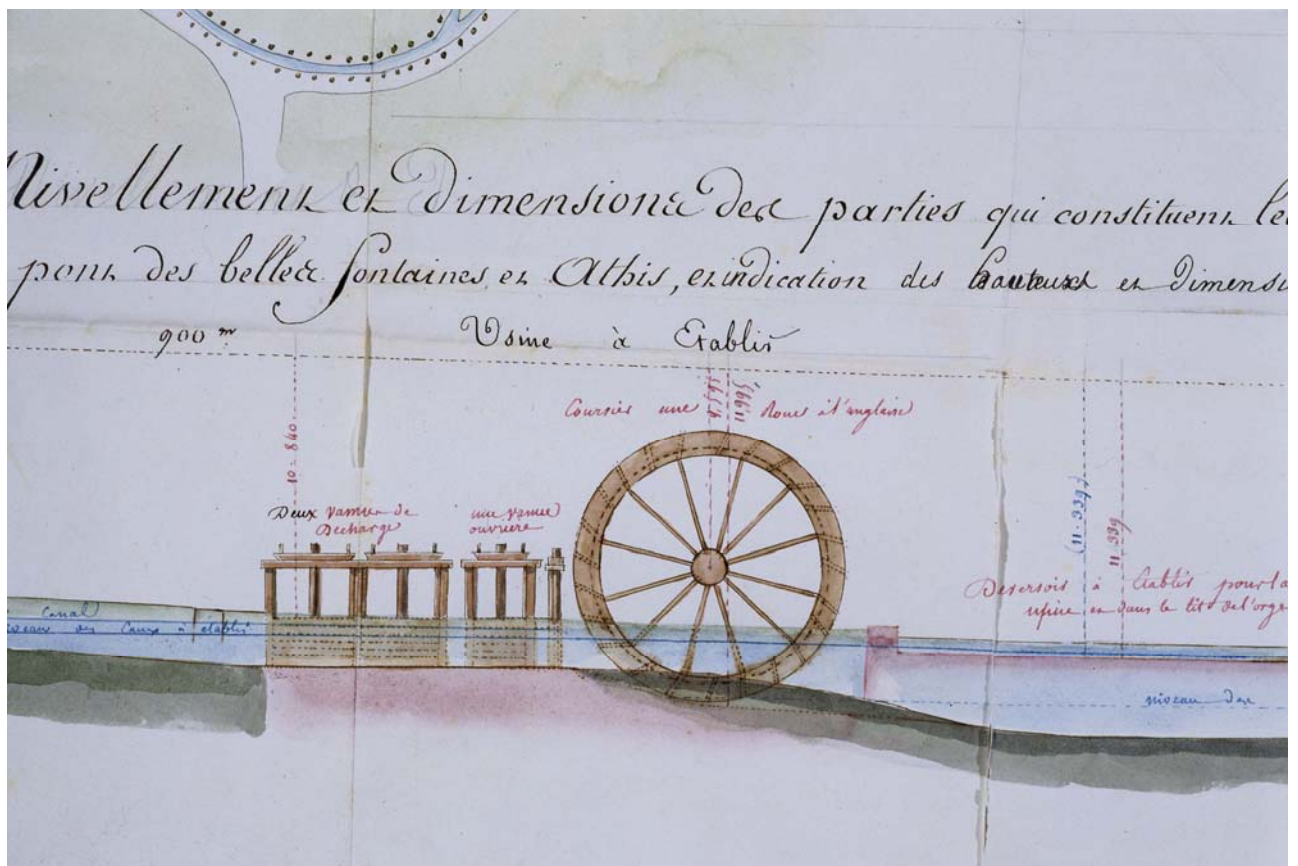 Nivellement et Dimensions des parties qui constituent les
pont des belles fontaines, et Athis, et indication des hauteurs et Dimensi
900 m
Usine à Etablir
Coursier une Roue à l'anglaise
11,995
10-840
Deux vannes de
Décharge
une vanne
ouvrière
(11-339)
11-339
Deversoir à Etablir pour la
usine et dans le lit de l'orge
Canal
niveau des Eaux à établir
niveau des